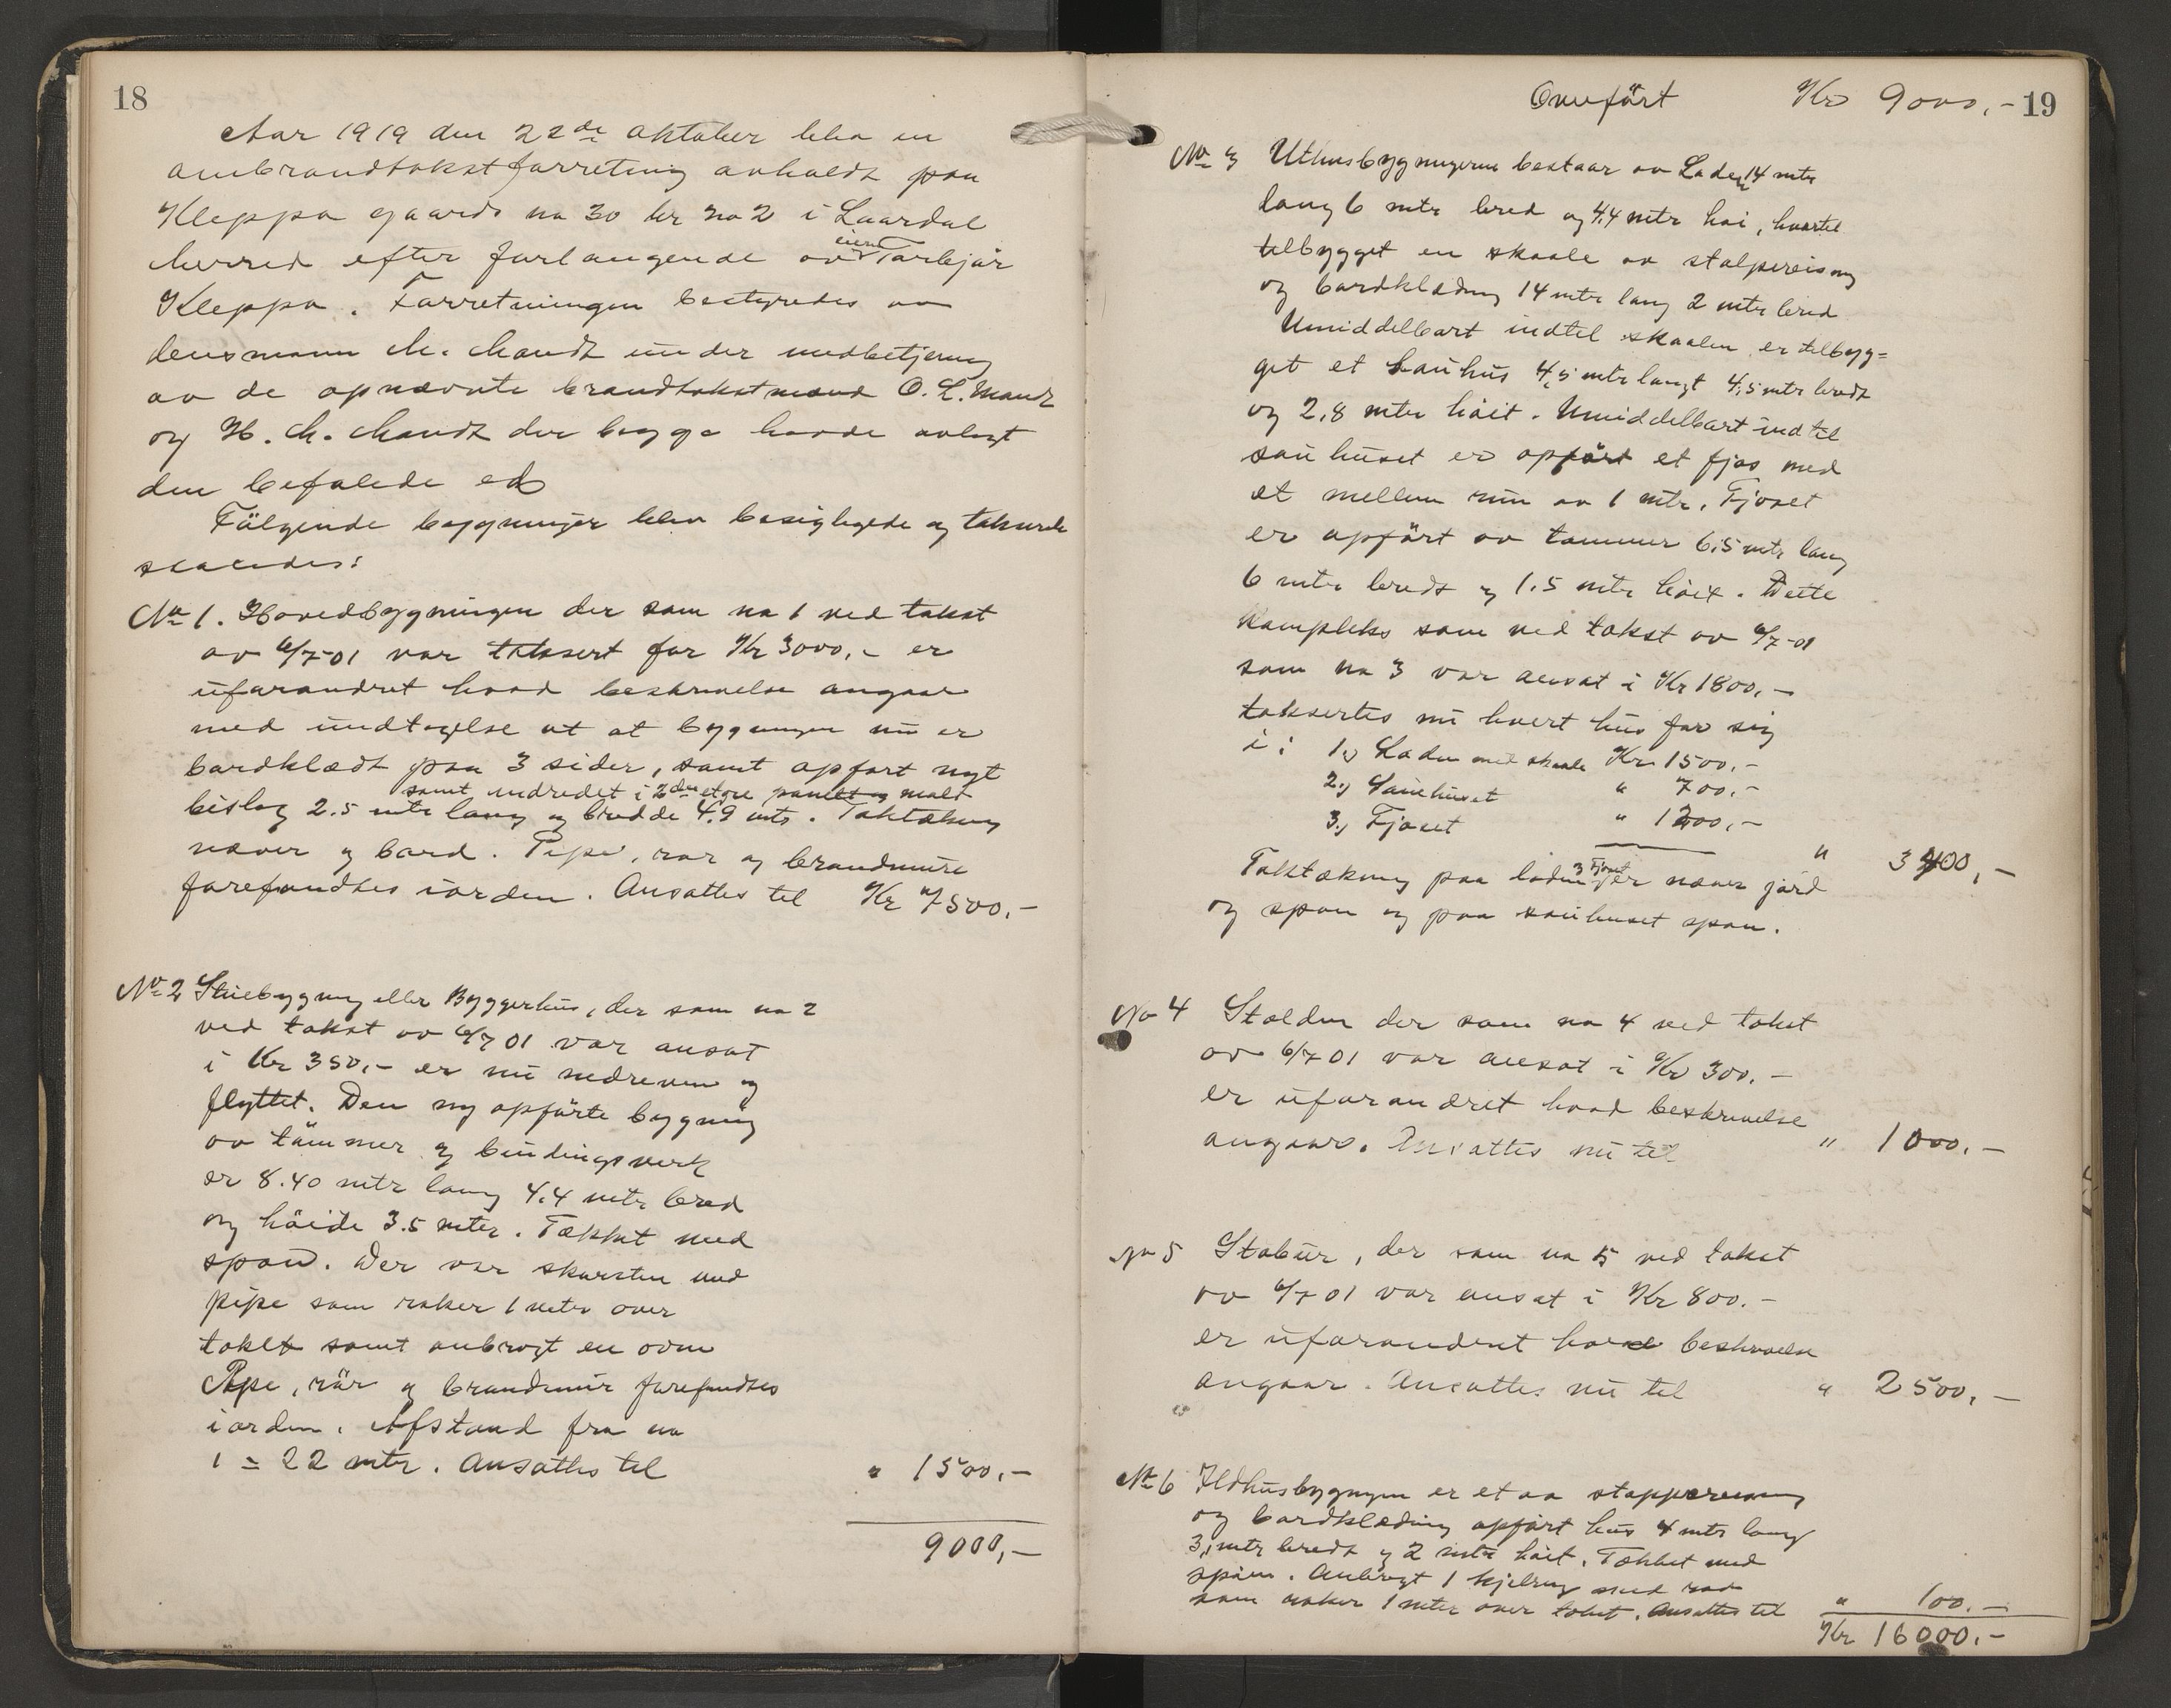 18
Aar 1919 den 22de oktober blev en
ombrandtakstforretning avholdt paa
Kleppa gaards no 30 br no 2 i Laardal
herred efter forlangende av eieren Torbjør
Kleppa. Forretningen bestyredes av
lensmann M. Mandt under medbetjening
av de opnævnte brandtakstmænd O. L. Mandt
og H. M. Mandt der begge havde avlagt
den befalede ed
Følgende bygninger blev besigtigede og takserte
saaledes:
No 1. Hovedbygningen der som no 1 ved takst
av 6/7-01 var taksert for Kr 3000,- er
uforandret hvad beskrivelse angaar
med undtagelse at at bygningen nu er
bordklædt paa 3 sider, samt opført nyt
samt indredet i 2den etage panelt og malt
bislag 2.5 mtr lang og bredde 4.9 mtr. Taktækning
næver og bord. Pipe, rør og brandmure
forefandtes iorden. Ansattes til Kr 7500,-
No 2 Stuebygning eller Byggerhus, der som no 2
ved takst av 6/7 01 var ansat
i Kr 350,- er nu nedreven og
flyttet. Den ny opførte bygning
av tømmer og bindingsverk
er 8.40 mtr lang 4.4 mtr bred
og høide 3.5 meter. Tækket med
spon. Der var skorsten med
pipe som raker 1 meter over
taket samt anbragt en ovn
Pipe, rør og brandmur forefandtes
iorden. Afstand fra no
1 = 22 mtr. Ansattes til " 1500,-
9000,-
Overført Kr 9000,- 19
No 3 Uthusbygningerne bestaar av Laden 14 mtr
lang 6 mtr bred og 4,4 mtr høi, hvortil
tilbygget en skaale av stolpereisning
og bordklædning 14 mtr lang 2 mtr bred
Umiddelbart indtil skaalen er tilbyg=
get et sauhus 4,5 mtr langt 4,5 mtr bredt
og 2,8 mtr høit. Umiddelbart indtil
sauhuset er opført et fjøs med
et mellem rum av 1 mtr. Fjøset
er opført av tømmer 6,5 mtr lang
6 mtr bredt og 1.5 mtr høit. Dette
kompleks som ved takst av 6/7-01
som no 3 var ansat i Kr 1800,-
taksertes nu hvert hus for sig
i: 1.) Laden med skaale Kr 1500,-
2.) Sauehuset " 700,-
3.) Fjøset " 1200,-
" 3400,-
Taktækning paa laden 3 Fjøset er næver jord
og spon og paa sauhuset spon.
No 4 Stalden der som no 4 ved takst
av 6/7 01 var ansat i Kr 300.-
er uforandret hvad beskrivelse
angaar. Ansattes nu til " 1000.-
No 5 Stabur, der som no 5 ved takst
av 6/7 01 var ansat i Kr 800.-
er uforandret hvad beskrivelse
angaar. Ansattes nu til " 2500,-
No 6 Ildhusbygningen er et av
og bordklædning opført hus 4 mtr lang
3, mtr bredt og 2 mtr høit. Tækket med
spon. Anbragt 1 med
som raker 1 meter over taket. Ansattes til " 100.-
Kr 16000.-